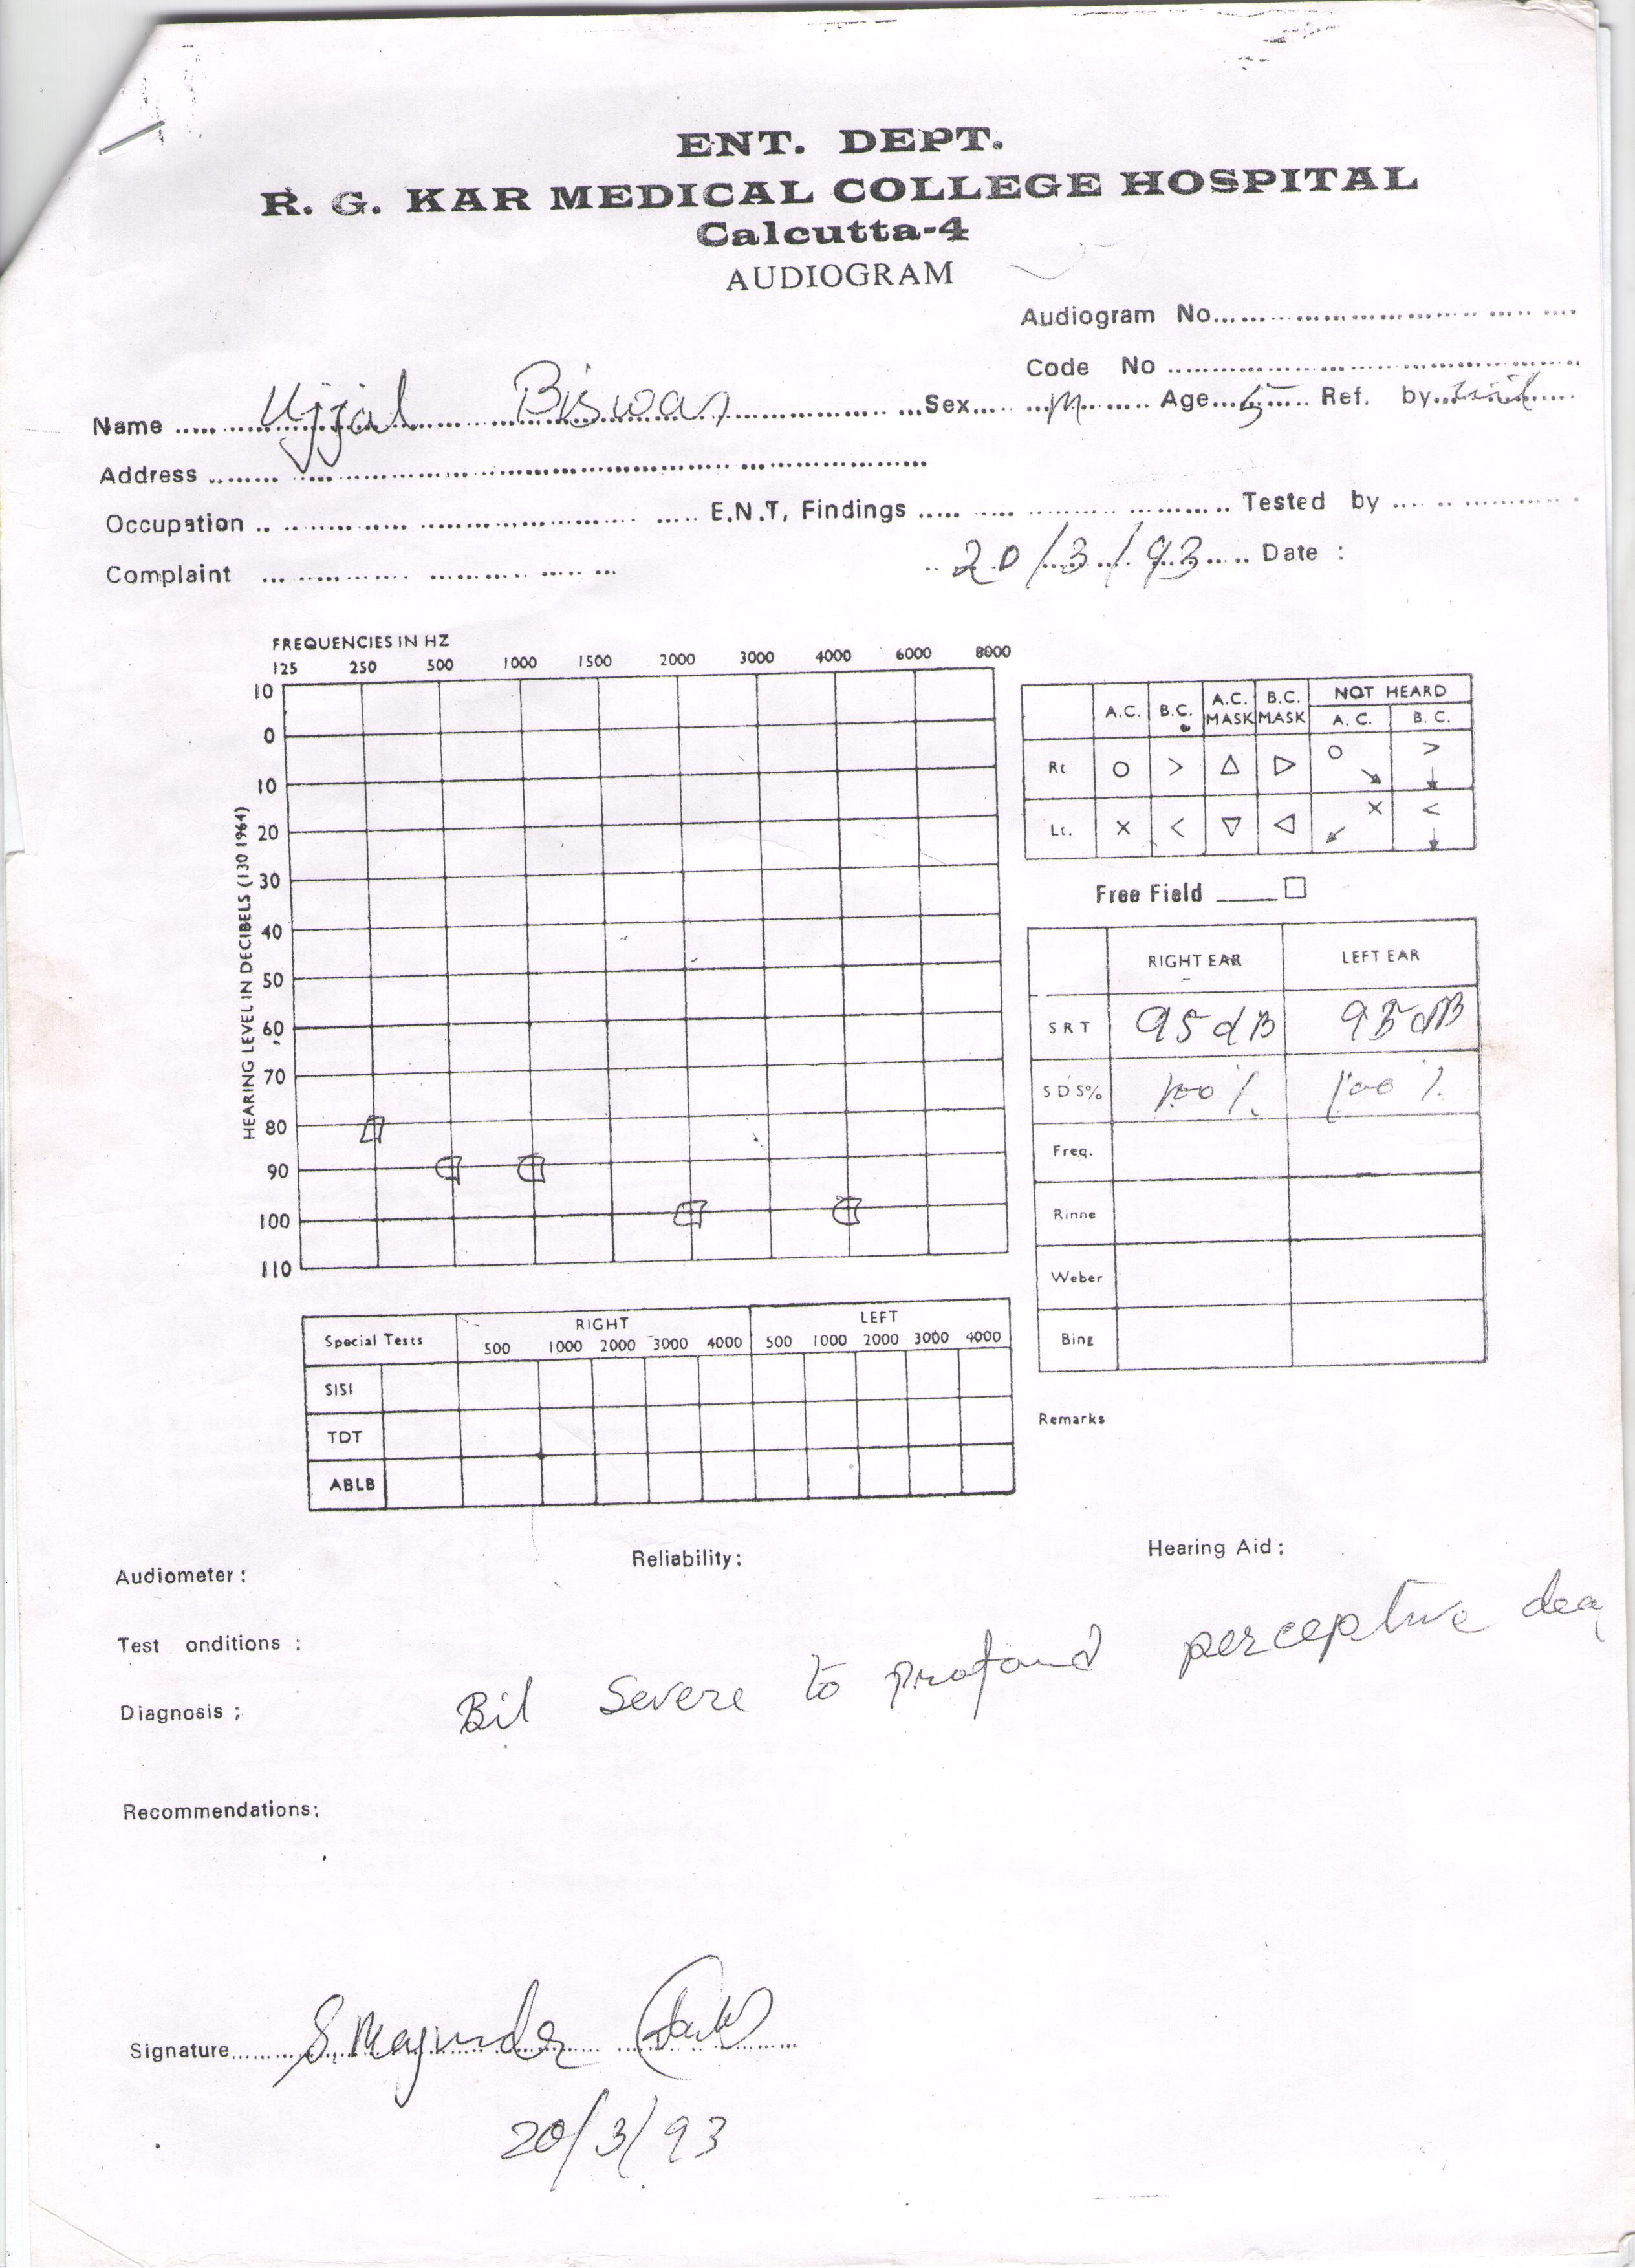 ENT. DEPT.
R. G. KAR MEDICAL COLLEGE HOSPITAL
Calcutta-4
AUDIOGRAM
Audiogram No.
Code No
Name Ujjal Biswas Sex m Age 5 Ref. by
Address
Occupation E.N.T, Findings Tested by
Complaint 20/3/93 Date :
FREQUENCIES IN HZ
125 250 500 1000 1500 2000 3000 4000 6000 8000
HEARING LEVEL IN DECIBELS (130 1964)
10
0
10
20
30
40
50
60
70
80
90
100
110
A.C. B.C. A.C. MASK B.C. MASK NOT HEARD
A. C. B. C.
Rt O > △ ▷ O ↘ > ↓
Lt. X < ▽ ◁ X ↙ < ↓
Free Field ____ □
RIGHT EAR LEFT EAR
SRT 95 dB 95 dB
SDS% 100% 100%
Freq.
Rinne
Weber
Bing
Special Tests RIGHT LEFT
500 1000 2000 3000 4000 500 1000 2000 3000 4000
SISI
TDT
ABLB
Remarks
Audiometer : Reliability : Hearing Aid :
Test onditions :
Diagnosis ; Bil Severe to profound perceptive dea
Recommendations:
Signature S. Majumder
20/3/93